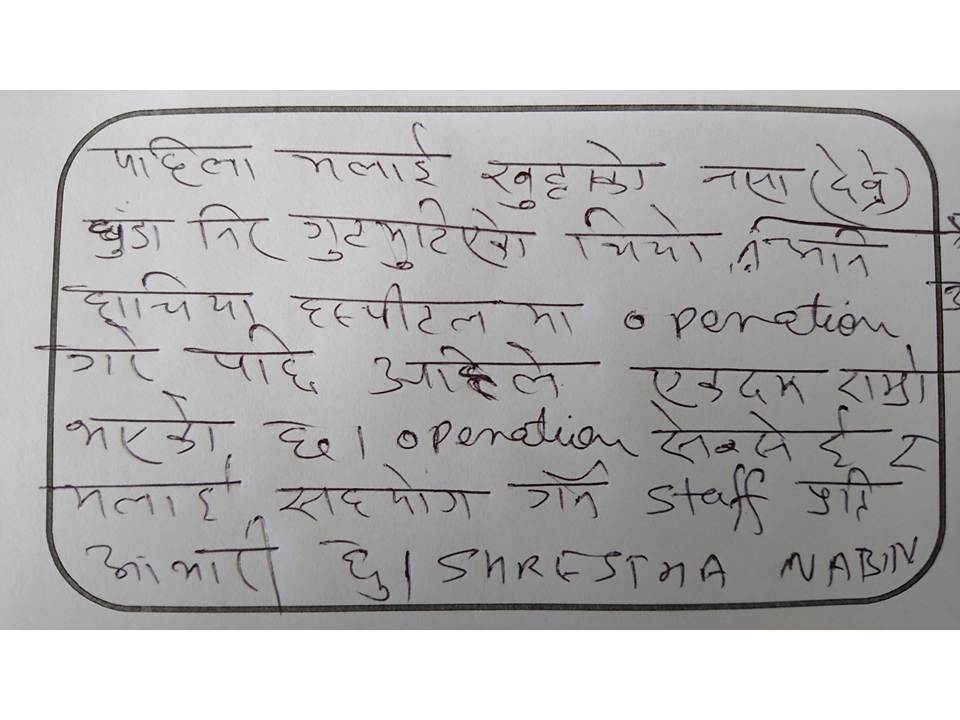 पाहिला मलाई खुट्टाको नसा (देब्रे)
घुंडा निर गुटमुटिएको थियो
हाचिया हस्पीटल मा operation
गरे पछि अहिले एकदम राम्रो
भएको छ। operation सेन्सेई र
मलाई सहयोग गर्ने staff प्रति
आभारी छु। SHRESTHA NABIN